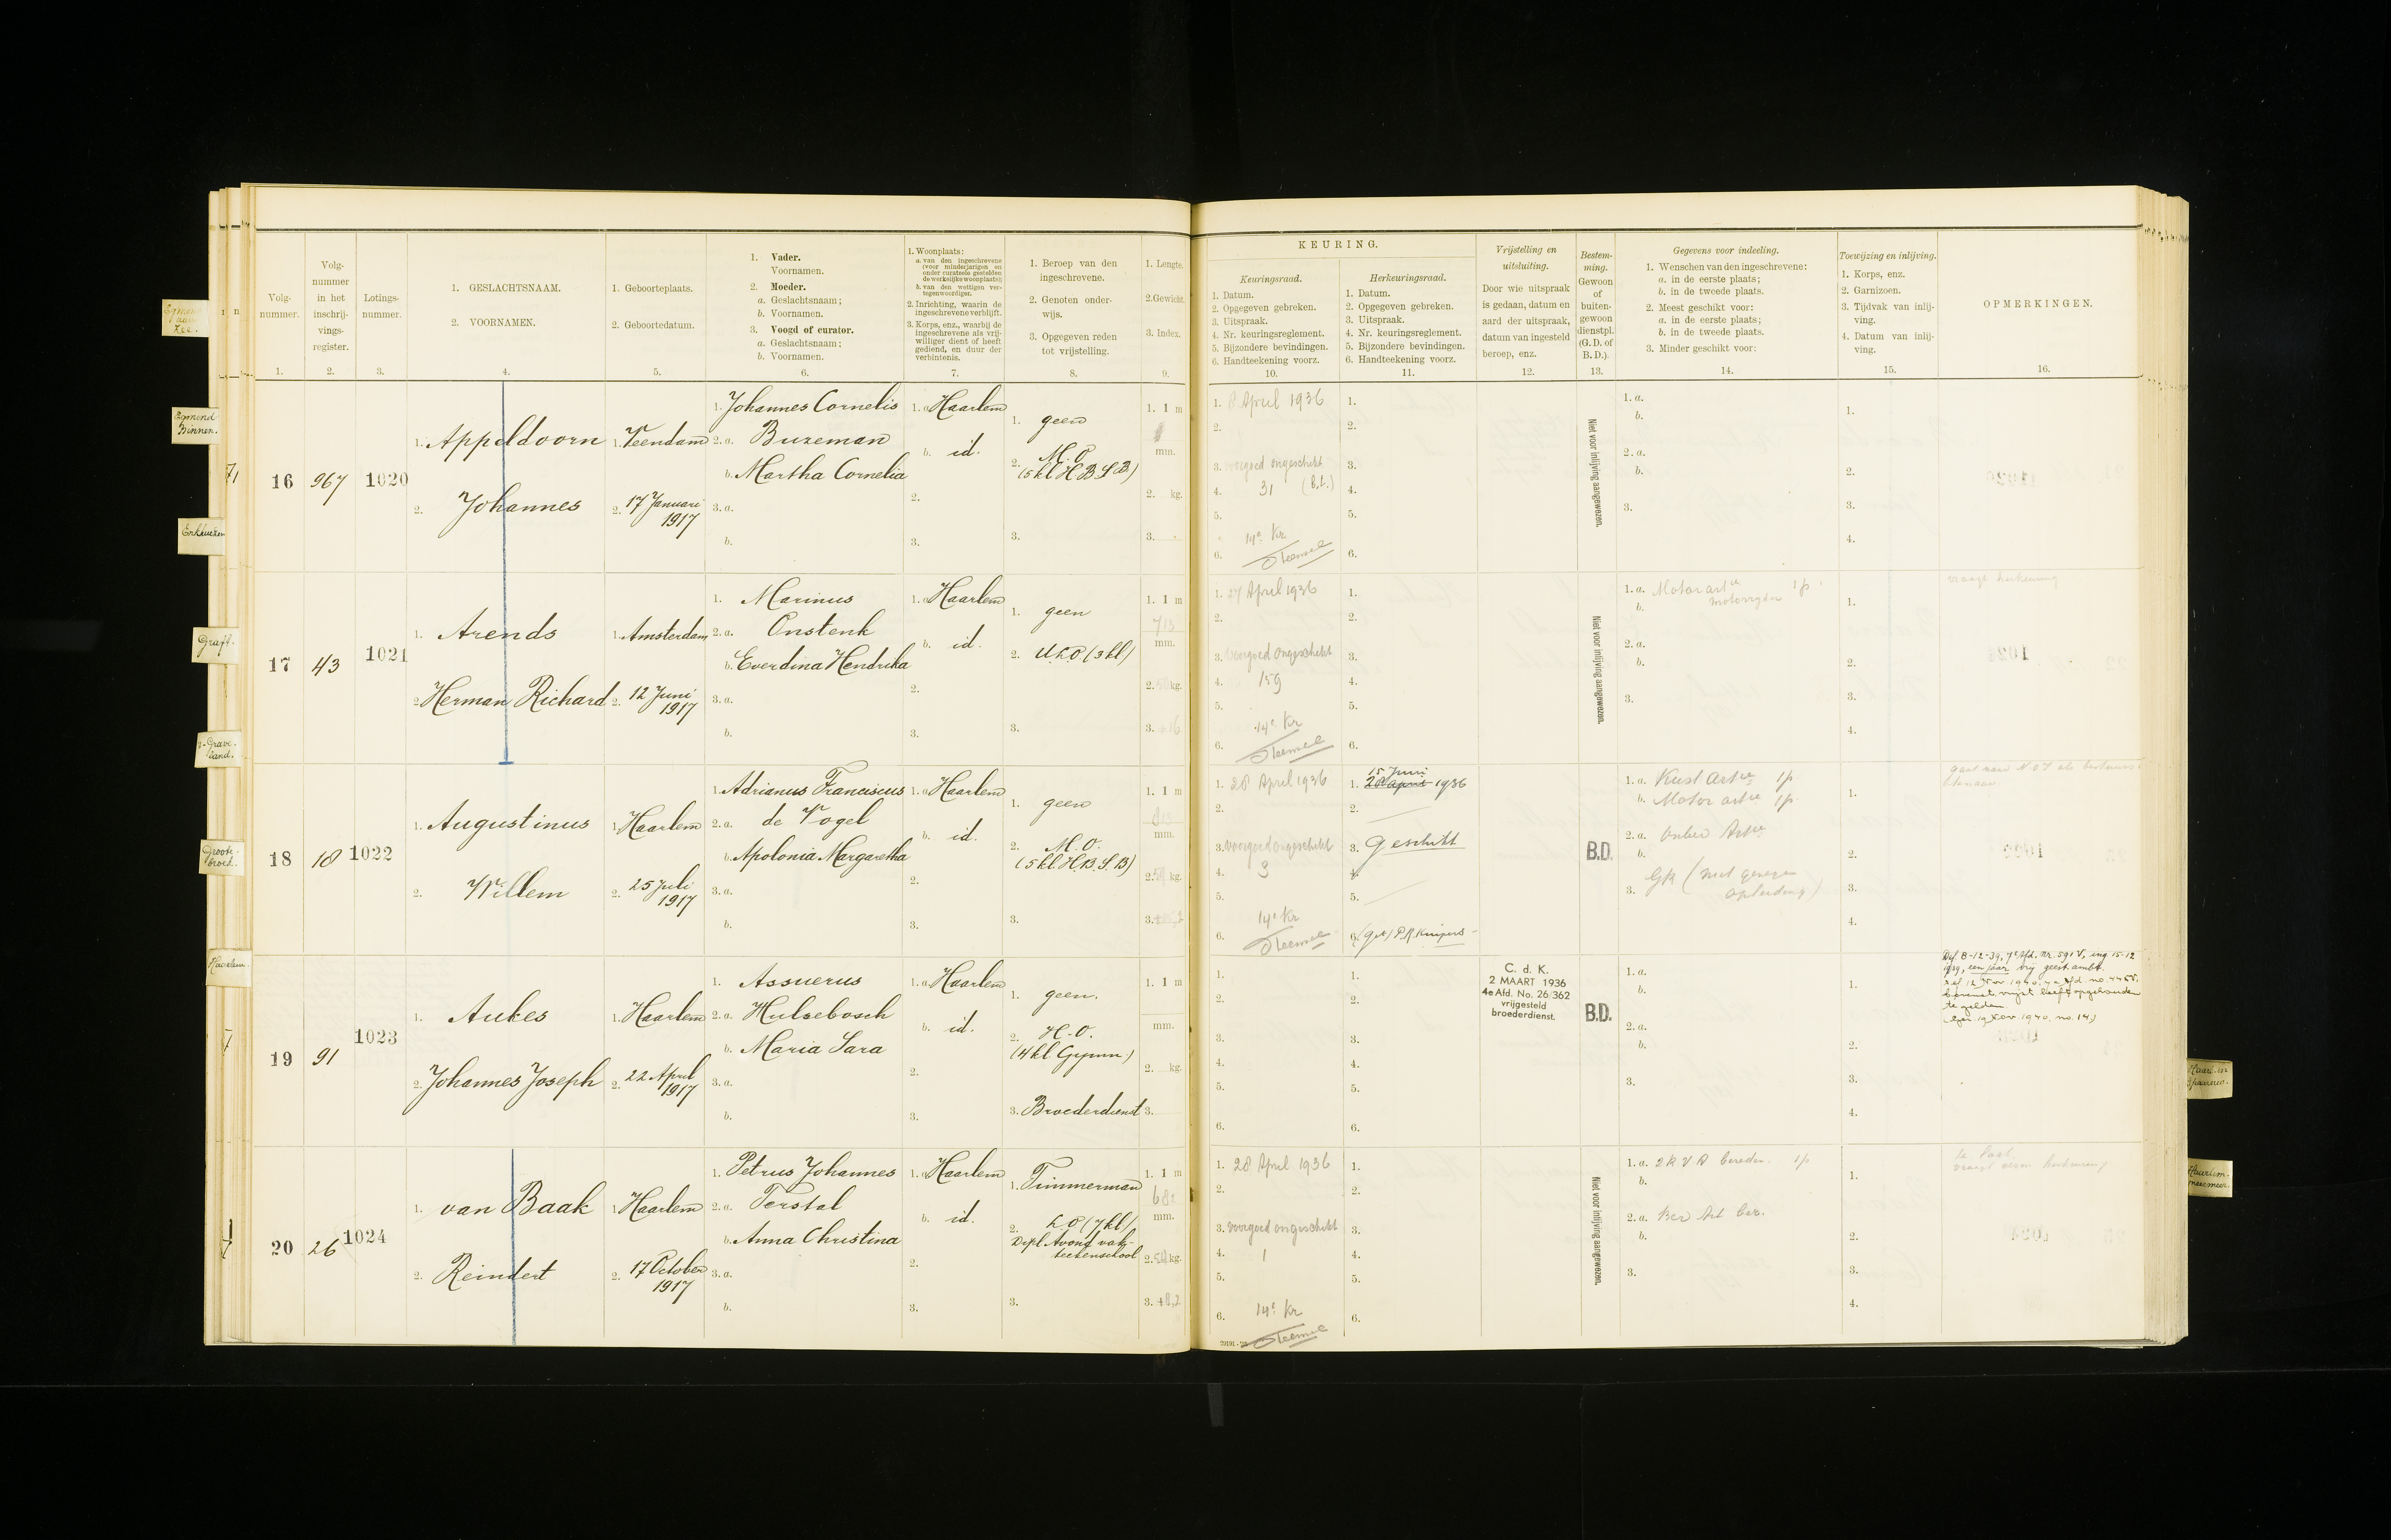 Volg-
nummer.
1.
Volg-
nummer
in het
inschrij-
vings-
register.
2.
Lotings-
nummer.
3.
1. GESLACHTSNAAM.
2. VOORNAMEN.
4.
1. Geboorteplaats.
2. Geboortedatum.
5.
1. Vader.
Voornamen.
2. Moeder.
a. Geslachtsnaam;
b. Voornamen.
3. Voogd of curator.
a. Geslachtsnaam;
b. Voornamen.
6.
1. Woonplaats:
a. van den ingeschrevene
(voor minderjarigen en
onder curateele gestelden
de werkelijke woonplaats);
b. van den wettigen ver-
tegenwoordiger.
2. Inrichting, waarin de
ingeschrevene verblijft.
3. Korps, enz., waarbij de
ingeschrevene als vrij-
williger dient of heeft
gediend, en duur der
verbintenis.
7.
1. Beroep van den
ingeschrevene.
2. Genoten onder-
wijs.
3. Opgegeven reden
tot vrijstelling.
8.
1. Lengte.
2. Gewicht.
3. Index.
9.
KEURING.
Keuringsraad.
1. Datum.
2. Opgegeven gebreken.
3. Uitspraak.
4. Nr. keuringsreglement.
5. Bijzondere bevindingen.
6. Handteekening voorz.
10.
Herkeuringsraad.
1. Datum.
2. Opgegeven gebreken.
3. Uitspraak.
4. Nr. keuringsreglement.
5. Bijzondere bevindingen.
6. Handteekening voorz.
11.
Vrijstelling en
uitsluiting.
Door wie uitspraak
is gedaan, datum en
aard der uitspraak,
datum van ingesteld
beroep, enz.
12.
Bestem-
ming.
Gewoon
of
buiten-
gewoon
dienstpl.
(G.D. of
B.D.).
13.
Gegevens voor indeeling.
1. Wenschen van den ingeschrevene:
a. in de eerste plaats;
b. in de tweede plaats.
2. Meest geschikt voor:
a. in de eerste plaats;
b. in de tweede plaats.
3. Minder geschikt voor:
14.
Toewijzing en inlijving.
1. Korps, enz.
2. Garnizoen.
3. Tijdvak van inlij-
ving.
4. Datum van inlij-
ving.
15.
OPMERKINGEN.
16.
16 967 1020
1. Appeldoorn
2. Johannes
1. Veendam
2. 17 Januari
1917
1. Johannes Cornelis
2. a. Buzeman
b. Martha Cornelia
3. a.
b.
1. a Haarlem
b. id.
2.
3.
1. geen
2. M.O.
(5 kl H.B.S. B)
3.
1. 1 m
mm.
2. kg.
3.
1. 8 April 1936
2.
3. voorgoed ongeschikt
4. 31 (B.L.)
5.
14e Kr
6.
1.
2.
3.
4.
5.
6.
Niet voor inlijving aangewezen.
1. a.
b.
2. a.
b.
3.
1.
2.
3.
4.
17 43 1021
1. Arends
2. Herman Richard
1. Amsterdam
2. 12 Juni
1917
1. Marinus
2. a. Onstenk
b. Everdina Hendrika
3. a.
b.
1. a Haarlem
b. id.
2.
3.
1. geen
2. ULO (3 kl)
3.
1. 1 m
713
mm.
2. kg.
3.
1. 27 April 1936
2.
3. voorgoed ongeschikt
4. 159
5.
14e Kr
6.
1.
2.
3.
4.
5.
6.
Niet voor inlijving aangewezen.
1. a. Motor artie 1p
b. motorrijder
2. a.
b.
3.
1.
2.
3.
4.
vraagt herkeuring
18 18 1022
1. Augustinus
2. Willem
1. Haarlem
2. 25 Juli
1917
1. Adrianus Franciscus
2. a. de Vogel
b. Apolonia Margaretha
3. a.
b.
1. a Haarlem
b. id.
2.
3.
1. geen
2. M.O.
(5 kl H.B.S. B)
3.
1. 1 m
mm.
2. kg.
3.
1. 28 April 1936
2.
3. voorgoed ongeschikt
4. 3
5.
14e Kr
6.
15 Juni
1. 28 April 1936
2.
3. Geschikt
4.
5.
6. (get) P.R. Kuipers
B.D.
1. a. Kust Artie 1p
b. Motor artie 1p
2. a. Onber Artie
b.
3.
opleiding)
1.
2.
3.
4.
19 91 1023
1. Aukes
2. Johannes Joseph
1. Haarlem
2. 22 April
1917
1. Assuerus
2. a. Hulsebosch
b. Maria Sara
3. a.
b.
1. a Haarlem
b. id.
2.
3.
1. geen.
2. H.O.
(4 kl Gymn)
3. Broederdienst
1. 1 m
mm.
2. kg.
3.
1.
2.
3.
4.
5.
6.
1.
2.
3.
4.
5.
6.
C. d. K.
2 MAART 1936
4e Afd. No. 26/362
vrijgesteld
broederdienst.
B.D.
1. a.
b.
2. a.
b.
3.
1.
2.
3.
4.
Def. 8-12-39, 7e Afd. nr. 591 V, ing. 15-12
1939, een jaar vrij geest. ambt.
12 Nov 1940, 7e Afd no
heeft opgehouden
te gelden
19 Nov. 1940, no. 14)
20 26 1024
1. van Baak
2. Reindert
1. Haarlem
2. 17 October
1917
1. Petrus Johannes
2. a. Terstal
b. Anna Christina
3. a.
b.
1. a Haarlem
b. id.
2.
3.
1. Timmerman
2. L.O (7 kl)
Dipl Avond vak-
teekenschool
3.
1. 1 m
682
mm.
2. kg.
3. +8,2
1. 28 April 1936
2.
3. voorgoed ongeschikt
4. 1
5.
14e Kr
6.
1.
2.
3.
4.
5.
6.
Niet voor inlijving aangewezen.
1. a. 2 R V A bereden. 1p
b.
2. a. Ber Art ber.
b.
3.
1.
2.
3.
4.
Egmond
aan
Zee.
Egmond
Binnen.
Enkhuizen
Graft.
's-Grave-
land.
Groote-
broek.
Haarlem.
Haarl.
Haarlem-
mermeer.